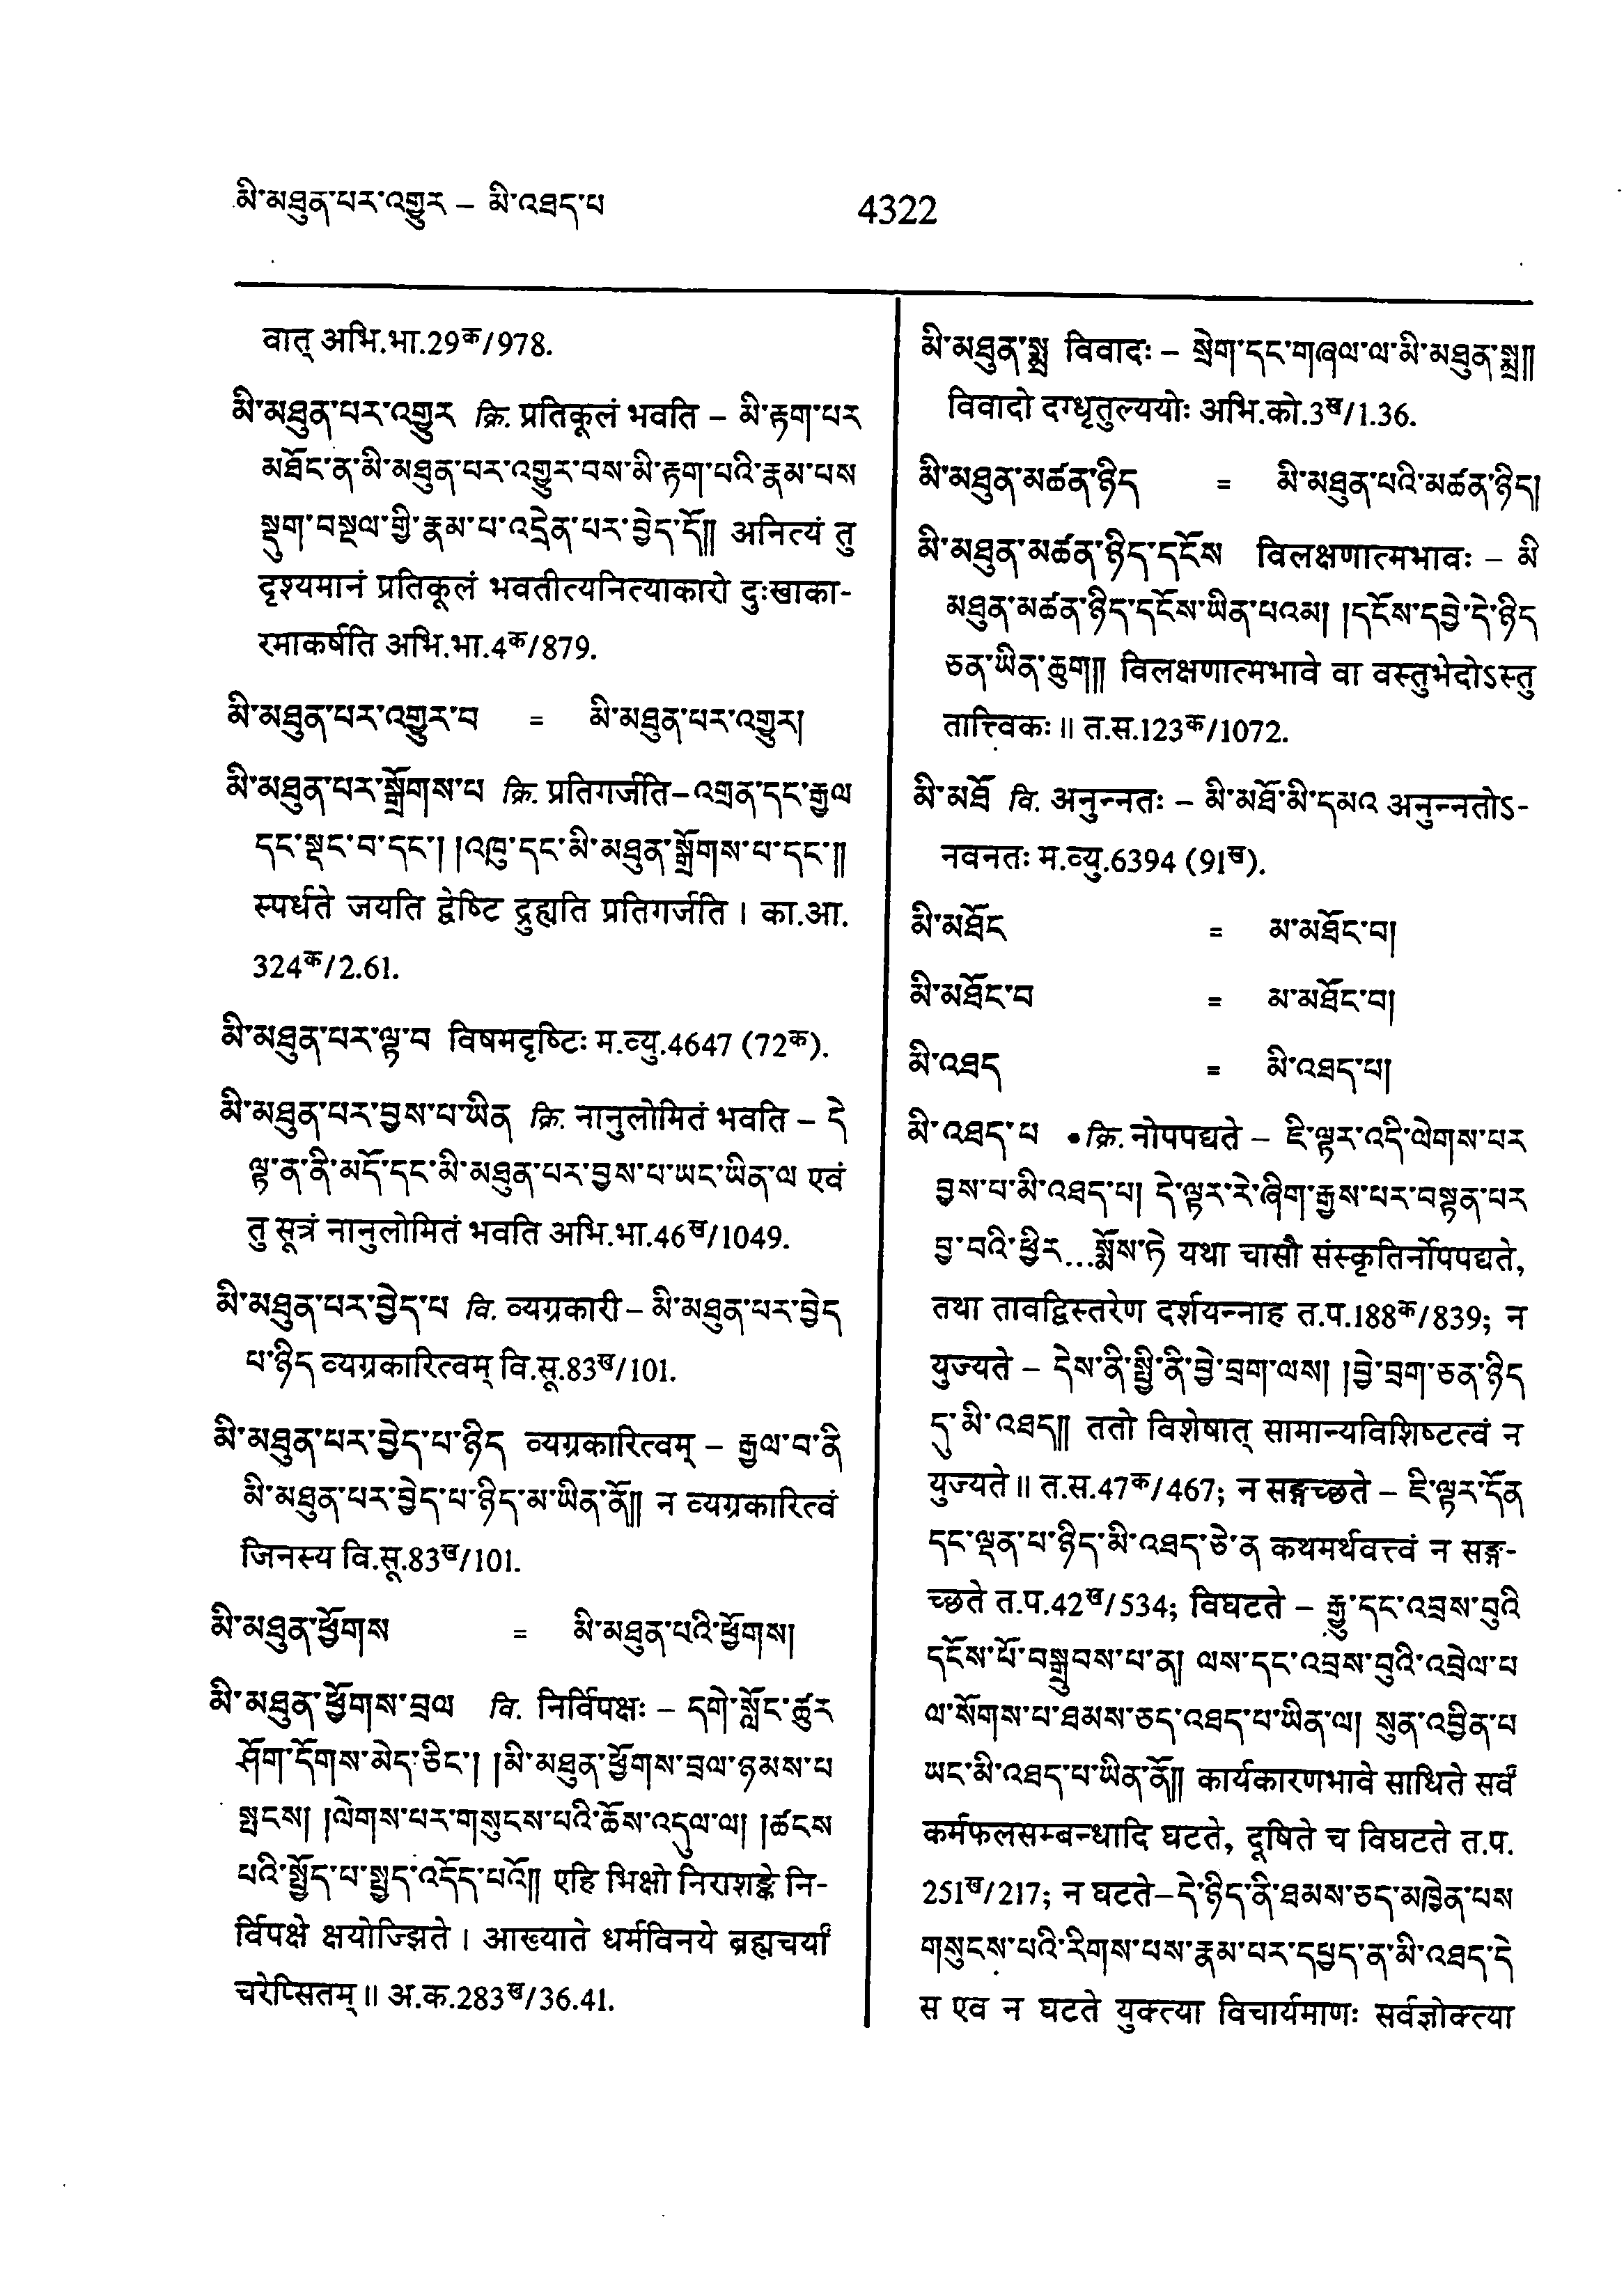 མི་མཐུན་པར་འགྱུར – མི་འཐད་པ
4322
वात् अभि.भा.29क/978.
མི་མཐུན་པར་འགྱུར क्रि. प्रतिकूलं भवति – མི་རྟག་པར
མཐོང་ན་མི་མཐུན་པར་འགྱུར་བས་མི་རྟག་པའི་རྣམ་པས
སྡུག་བསྔལ་གྱི་རྣམ་པ་འདྲེན་པར་བྱེད་དོ།། अनित्यं तु
दृश्यमानं प्रतिकूलं भवतीत्यनित्याकारो दुःखाका-
रमाकर्षति अभि.भा.4क/879.
མི་མཐུན་པར་འགྱུར་བ = མི་མཐུན་པར་འགྱུར།
མི་མཐུན་པར་སྒྲོགས་པ क्रि. प्रतिगर्जति–འགྲན་དང་རྒྱལ
དང་སྡང་བ་དང་། །འཁུ་དང་མི་མཐུན་སྒྲོགས་པ་དང་།།
स्पर्धते जयति द्वेष्टि द्रुह्यति प्रतिगर्जति । का.आ.
324क/2.61.
མི་མཐུན་པར་ལྟ་བ विषमदृष्टिः म.व्यु.4647 (72क).
མི་མཐུན་པར་བྱས་པ་ཡིན क्रि. नानुलोमितं भवति – དེ
ལྟ་ན་ནི་མདོ་དང་མི་མཐུན་པར་བྱས་པ་ཡང་ཡིན་ལ एवं
तु सूत्रं नानुलोमितं भवति अभि.भा.46ख/1049.
མི་མཐུན་པར་བྱེད་པ वि. व्यग्रकारी – མི་མཐུན་པར་བྱེད
པ་ཉིད व्यग्रकारित्वम् वि.सू.83ख/101.
མི་མཐུན་པར་བྱེད་པ་ཉིད व्यग्रकारित्वम् – རྒྱལ་བ་ནི
མི་མཐུན་པར་བྱེད་པ་ཉིད་མ་ཡིན་ནོ།། न व्यग्रकारित्वं
जिनस्य वि.सू.83ख/101.
མི་མཐུན་ཕྱོགས = མི་མཐུན་པའི་ཕྱོགས།
མི་མཐུན་ཕྱོགས་བྲལ वि. निर्विपक्षः – དགེ་སློང་ཚུར
ཤོག་དོགས་མེད་ཅིང་། །མི་མཐུན་ཕྱོགས་བྲལ་ཉམས་པ
སྤངས། །ལེགས་པར་གསུངས་པའི་ཆོས་འདུལ་ལ། །ཚངས
པའི་སྤྱོད་པ་སྤྱད་འདོད་པའོ།། एहि भिक्षो निराशङ्के नि-
र्विपक्षे क्षयोज्झिते । आख्याते धर्मविनये ब्रह्मचर्यां
चरेप्सितम् ॥ अ.क.283ख/36.41.
མི་མཐུན་སྨྲ विवादः – སྲེག་དང་གཞལ་ལ་མི་མཐུན་སྨྲ།།
विवादो दग्धृतुल्ययोः अभि.को.3ख/1.36.
མི་མཐུན་མཚན་ཉིད = མི་མཐུན་པའི་མཚན་ཉིད།
མི་མཐུན་མཚན་ཉིད་དངོས विलक्षणात्मभावः – མི
མཐུན་མཚན་ཉིད་དངོས་ཡིན་པའམ། །དངོས་དབྱེ་དེ་ཉིད
ཅན་ཡིན་ཆུག།། विलक्षणात्मभावे वा वस्तुभेदोऽस्तु
तात्त्विकः ॥ त.स.123क/1072.
མི་མཐོ वि. अनुन्नतः – མི་མཐོ་མི་དམའ अनुन्नतोऽ-
नवनतः म.व्यु.6394 (91ख).
མི་མཐོང = མ་མཐོང་བ།
མི་མཐོང་བ = མ་མཐོང་བ།
མི་འཐད = མི་འཐད་པ།
མི་འཐད་པ •क्रि. नोपपद्यते – ཇི་ལྟར་འདི་ལེགས་པར
བྱས་པ་མི་འཐད་པ། དེ་ལྟར་རེ་ཞིག་རྒྱས་པར་བསྟན་པར
བྱ་བའི་ཕྱིར...སྨོས་ཏེ यथा चासौ संस्कृतिर्नोपपद्यते,
तथा तावद्विस्तरेण दर्शयन्नाह त.प.188क/839; न
युज्यते – དེས་ནི་སྤྱི་ནི་བྱེ་བྲག་ལས། །བྱེ་བྲག་ཅན་ཉིད
དུ་མི་འཐད།། ततो विशेषात् सामान्यविशिष्टत्वं न
युज्यते ॥ त.स.47क/467; न सङ्गच्छते – ཇི་ལྟར་དོན
དང་ལྡན་པ་ཉིད་མི་འཐད་ཅེ་ན कथमर्थवत्त्वं न सङ्ग-
च्छते त.प.42ख/534; विघटते – རྒྱུ་དང་འབྲས་བུའི
དངོས་པོ་བསྒྲུབས་པ་ན། ལས་དང་འབྲས་བུའི་འབྲེལ་པ
ལ་སོགས་པ་ཐམས་ཅད་འཐད་པ་ཡིན་ལ། སུན་འབྱིན་པ
ཡང་མི་འཐད་པ་ཡིན་ནོ།། कार्यकारणभावे साधिते सर्वं
कर्मफलसम्बन्धादि घटते, दूषिते च विघटते त.प.
251ख/217; न घटते–དེ་ཉིད་ནི་ཐམས་ཅད་མཁྱེན་པས
གསུངས་པའི་རིགས་པས་རྣམ་པར་དཔྱད་ན་མི་འཐད་དེ
स एव न घटते युक्त्या विचार्यमाणः सर्वज्ञोक्त्या